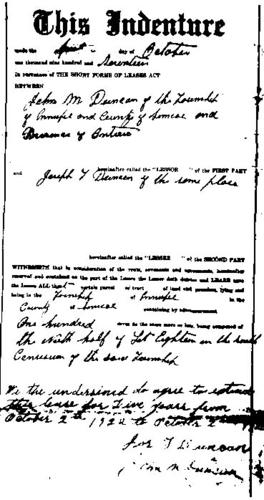 This Indenture
made the first day of October
one thousand nine hundred and Seventeen
In pursuance of THE SHORT FORMS OF LEASES ACT
BETWEEN
John M Duncan of the Township
of Innisfil and County of Simcoe and
Province of Ontario
hereinafter called the "LESSOR" of the FIRST PART
and Joseph T Duncan of the same place
hereinafter called the "LESSEE" of the SECOND PART
WITNESSETH that in consideration of the rents, covenants and agreements, hereinafter
reserved and contained on the part of the Lessee the Lessor doth demise and LEASE unto
the Lessee ALL that certain parcel or tract of land and premises, lying and
being in the Township of Innisfil in the
County of Simcoe containing by admeasurement
One hundred acres be the same more or less, being composed of
the North half of Lot Eighteen in the
Concession of the said Township
We the undersigned do agree to extend
this lease for Five years from
October 2nd 1922 to October 2
Jos T Duncan
John M Duncan